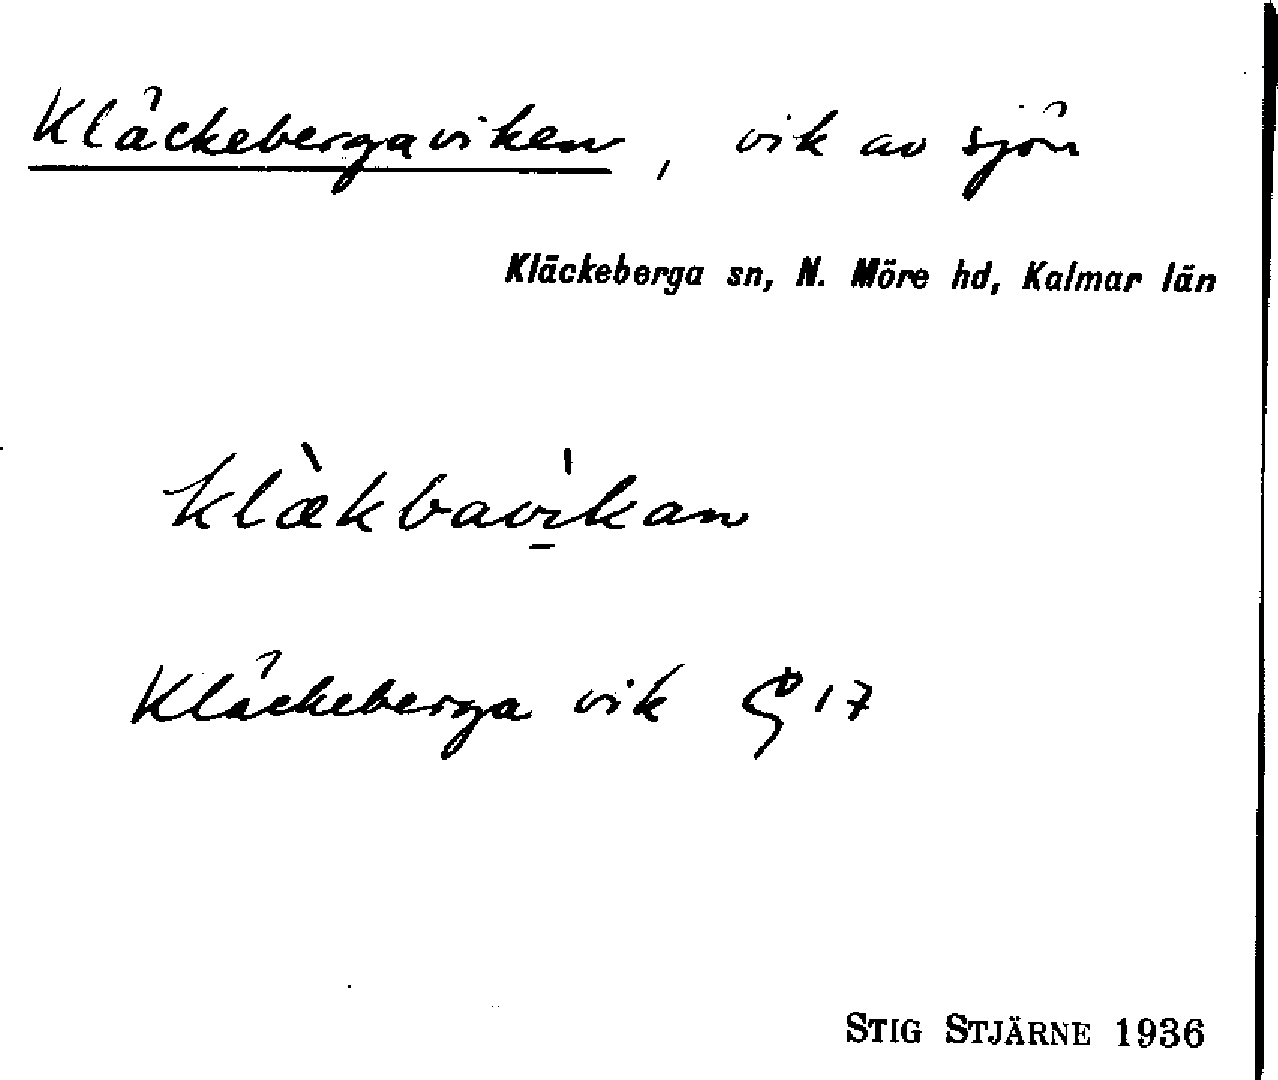 Kläckebergaviken, vik av sjön
Kläckeberga sn, N. Möre hd, Kalmar län
klæ̀kbavi̠kan
Kläckeberga vik 17
STIG STJÄRNE 1936